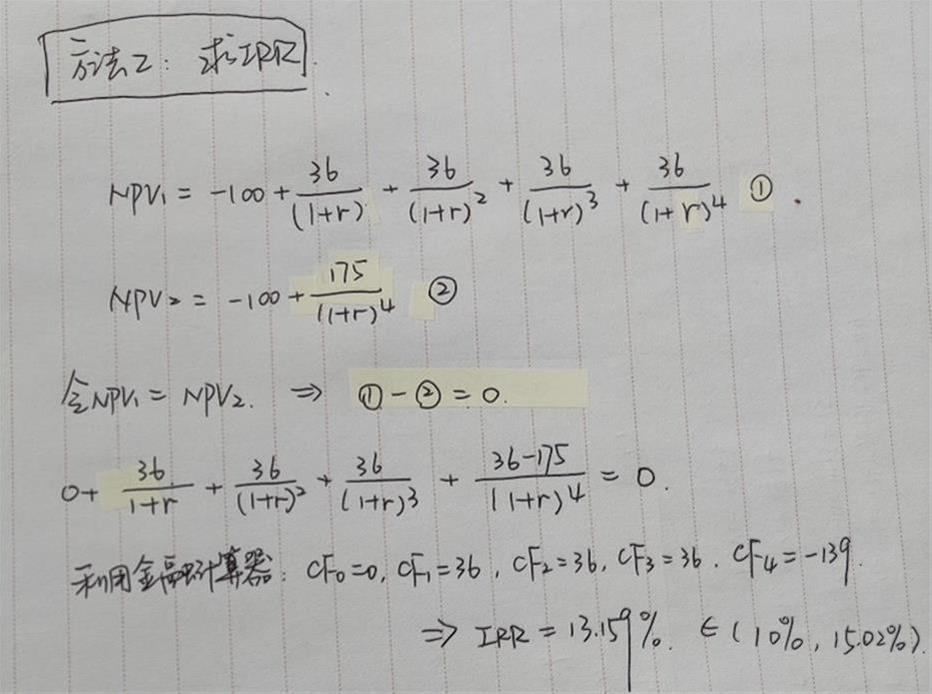 方法2: 求IRR.
NPV₁ = -100 + 36/(1+r) + 36/(1+r)² + 36/(1+r)³ + 36/(1+r)⁴ ①
NPV₂ = -100 + 175/(1+r)⁴ ②
令NPV₁ = NPV₂. ⇒ ① - ② = 0.
0 + 36/1+r + 36/(1+r)² + 36/(1+r)³ + 36-175/(1+r)⁴ = 0.
利用金融计算器: CF₀=0, CF₁=36, CF₂=36, CF₃=36, CF₄=-139.
⇒ IRR = 13.159%. ∈ (10%, 15.02%).